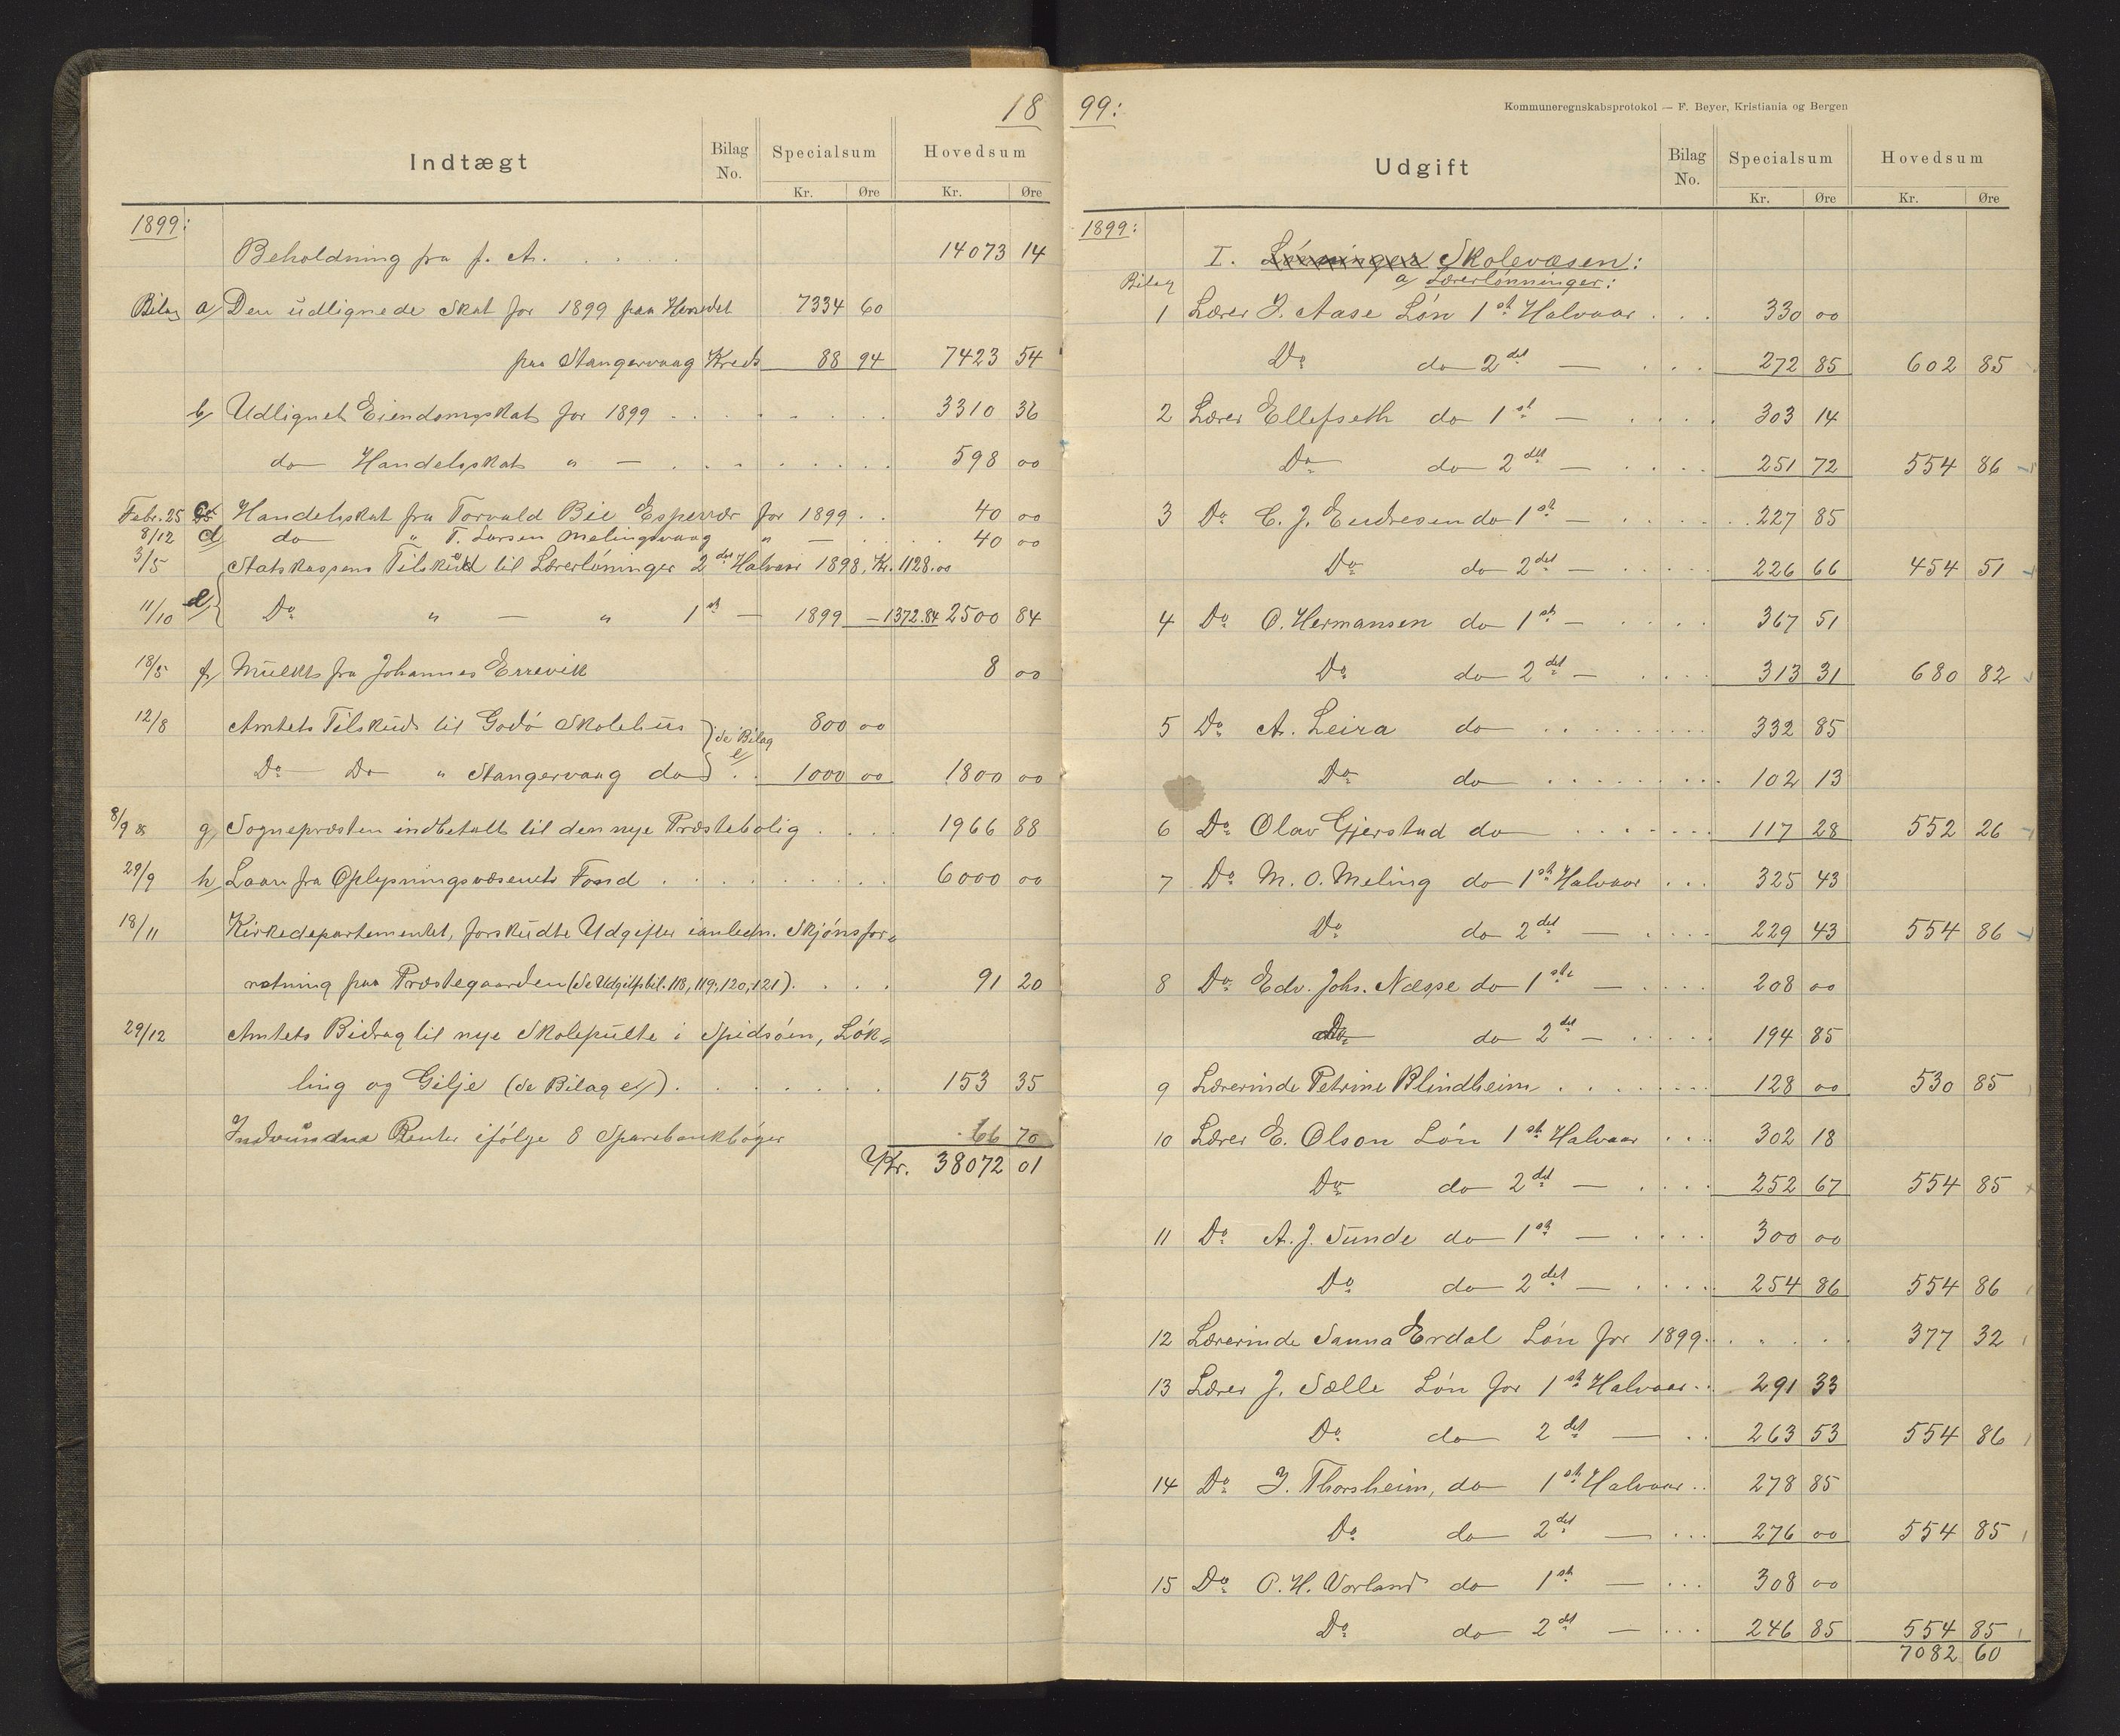 18
Indtægt
Bilag No.
Specialsum
Hovedsum
Kr. Øre Kr. Øre
1899:
Beholdning fra f. A. . . . . 14073 14
Bilag a/ Den udlignede Skat for 1899 paa Herredet 7334 60
paa Stangervaag Kreds 88 94 7423 54
b/ Udlignet Eiendomsskat for 1899 . . . . . 3310 36
do Handelsskat " — . . . . . 598 00
Febr. 25 c/ Handelsskat fra Torvald Bie Espevær for 1899 . . 40 00
8/12 d/ do " T. Larsen Melingsvaag " — . . . 40 00
3/5 Statskassens Tilskud til Lærerlønninger 2det Halvaar 1898, Kr. 1128.00
11/10 e/ Do " — " 1ste — 1899 — 1372.84 2500 84
18/5 f/ Mulkt fra Johannes Errevik 8 00
12/8 Amtets Tilskud til Godø Skolehus 800 00
Do Do " Stangervaag do } se Bilag e/ . . 1000 00 1800 00
8/9 g/ Sognepræsten indbetalt til den nye Præstebolig . . . 1966 88
29/9 h/ Laan fra Oplysningsvæsenets Fond . . . . . 6000 00
18/11 Kirkedepartementet, forskudte Udgifter ianledn. Skjønsfor-
retning paa Præstegaarden (se Udgiftsbil. 118, 119, 120, 121) . . . 91 20
29/12 Amtets Bidrag til nye Skolepulte i Spidsøen, Løk-
ling og Gilje (se Bilag e/) . . . . . 153 35
Indvundne Renter ifølge 8 Sparebankbøger 66 70
Kr. 38072 01
99:
Kommuneregnskabsprotokol — F. Beyer, Kristiania og Bergen
Udgift
Bilag No.
Specialsum
Hovedsum
Kr. Øre Kr. Øre
1899:
I. Lønninger Skolevæsen:
Bilag a Lærerlønninger:
1 Lærer J. Aase Løn 1ste Halvaar . . . 330 00
Do do 2det — . . . 272 85 602 85
2 Lærer Ellefseth do 1ste — . . . . 303 14
Do do 2det — . . . . 251 72 554 86
3 Do C. J. Endresen do 1ste — . . . . 227 85
Do do 2det — . . . . 226 66 454 51
4 Do O. Hermansen do 1ste — . . . . 367 51
Do do 2det — . . . . 313 31 680 82
5 Do A. Leira do . . . . . 332 85
Do do . . . . . 102 13
6 Do Olav Gjerstad do . . . . . 117 28 552 26
7 Do M. O. Meling do 1ste Halvaar . . . 325 43
Do do 2det — . . . . 229 43 554 86
8 Do Edv. Johs. Næsse do 1ste — . . . . 208 00
Do do 2det — . . . . 194 85
9 Lærerinde Petrine Blindheim . . . . . 128 00 530 85
10 Lærer E. Olson Løn 1ste Halvaar . . . 302 18
Do do 2det — . . . . 252 67 554 85
11 Do A. J. Sunde do 1ste — . . . . 300 00
Do do 2det — . . . . 254 86 554 86
12 Lærerinde Sanna Erdal Løn for 1899 . . . . . 377 32
13 Lærer J. Sælle Løn for 1ste Halvaar . . 291 33
Do do 2det — . . 263 53 554 86
14 Do J. Thorsheim, do 1ste Halvaar . . 278 85
Do do 2det — . . . 276 00 554 85
15 Do O. H. Vorland do 1ste — . . . 308 00
Do do 2det — . . . 246 85 554 85
7082 60